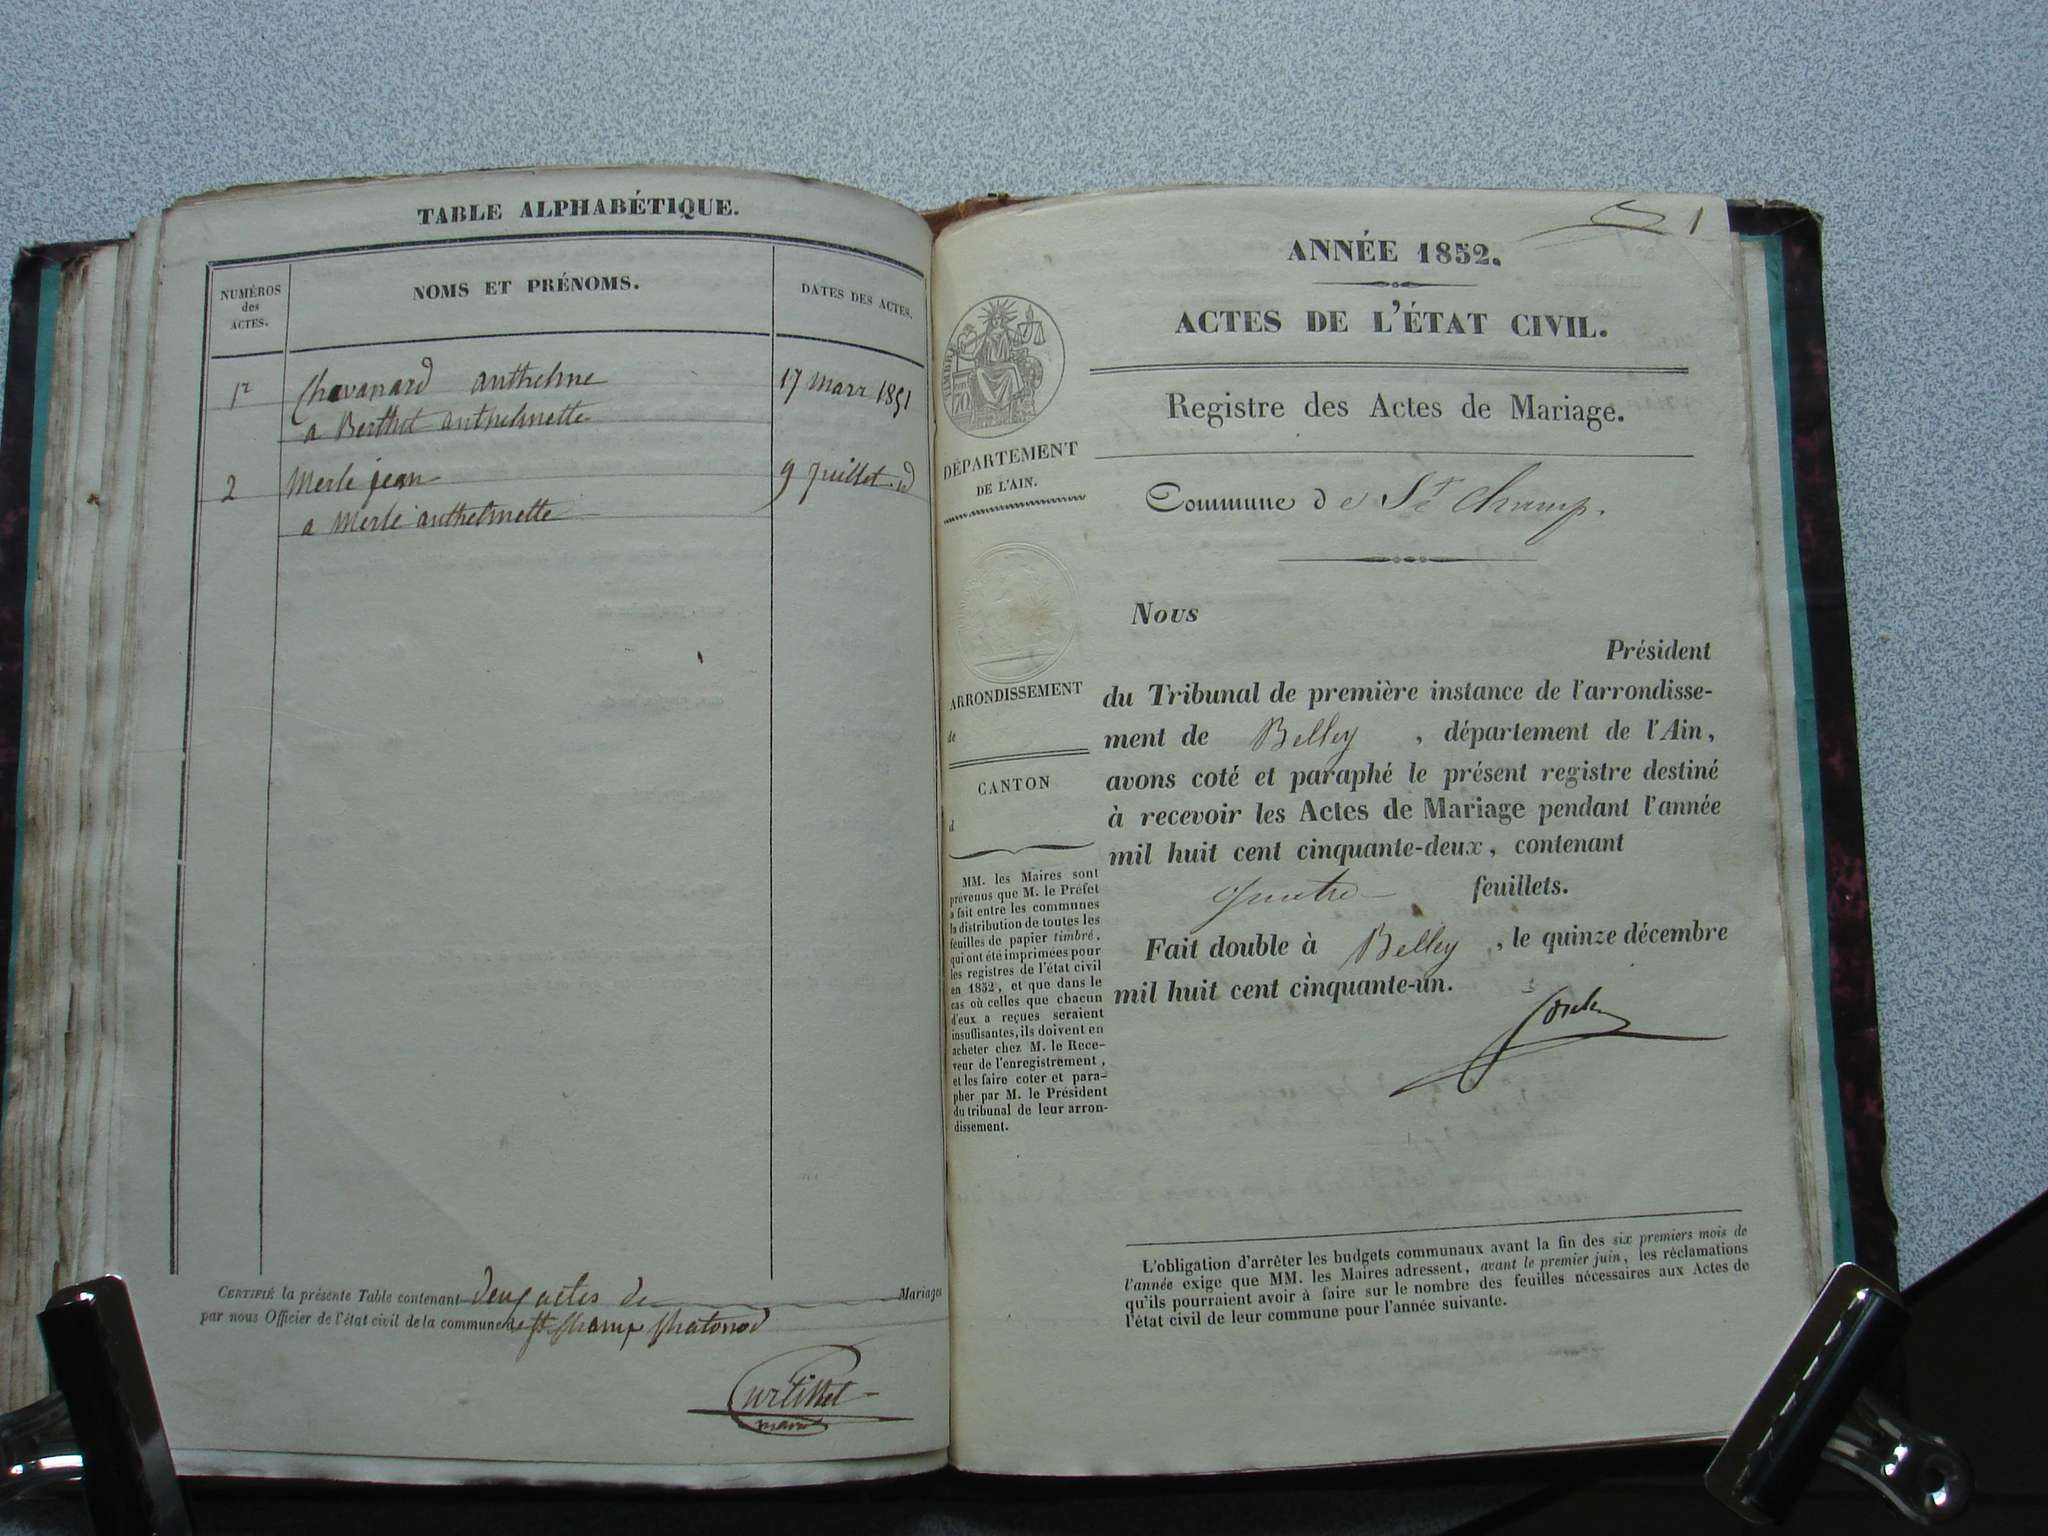 TABLE ALPHABÉTIQUE.
NUMÉROS
des
ACTES.
NOMS ET PRÉNOMS.
DATES DES ACTES.
1er Chavanard anthelme 17 mars 1851
a Berthot anthelmette
2 Merle jean 9 Juillet id
a Merle anthelmette
CERTIFIÉ la présente Table contenant deux actes de Mariages
par nous Officier de l'état civil de la commune de St Champ Chatonod
Curtillet
maire
1
ANNÉE 1852.
ACTES DE L'ÉTAT CIVIL.
Registre des Actes de Mariage.
TIMBRE
70
DÉPARTEMENT
DE L'AIN.
Commune de St Champ.
Nous
Président
du Tribunal de première instance de l'arrondisse-
ment de Belley, département de l'Ain,
avons coté et paraphé le présent registre destiné
à recevoir les Actes de Mariage pendant l'année
mil huit cent cinquante-deux, contenant
quatre feuillets.
Fait double à Belley, le quinze décembre
mil huit cent cinquante-un.
ARRONDISSEMENT
de
CANTON
d
MM. les Maires sont
prévenus que M. le Préfet
a fait entre les communes
la distribution de toutes les
feuilles de papier timbré,
qui ont été imprimées pour
les registres de l'état civil
en 1852, et que dans le
cas où celles que chacun
d'eux a reçues seraient
insuffisantes, ils doivent en
acheter chez M. le Rece-
veur de l'enregistrement,
et les faire coter et para-
pher par M. le Président
du tribunal de leur arron-
dissement.
L'obligation d'arrêter les budgets communaux avant la fin des six premiers mois de
l'année exige que MM. les Maires adressent, avant le premier juin, les réclamations
qu'ils pourraient avoir à faire sur le nombre des feuilles nécessaires aux Actes de
l'état civil de leur commune pour l'année suivante.